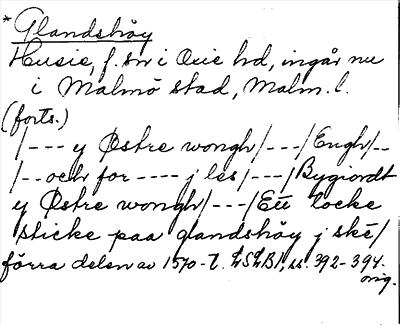 * Glandshöy
Husie, f. sn i Oxie hd, ingår nu
i Malmö stad, Malm. l.
(forts.)
/--- y Østre wongh/---/Engh/--
/--och for ---- j les/---/Bygiordt
y Østre wongh/---/Ett locke
sticke paa glandshöy j ske/
förra delen av 1570-t. LSLB1, ss. 392-394.
orig.